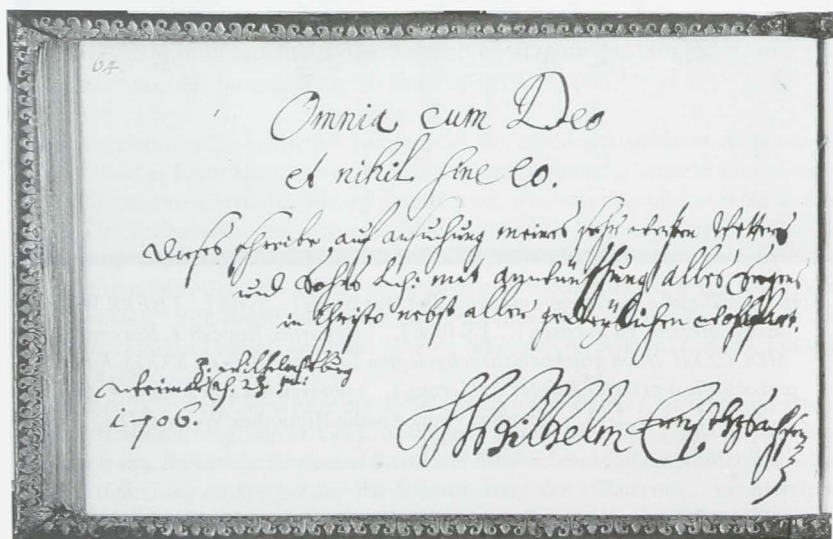 64
Omnia cum Deo
et nihil sine eo.
Dieses schreibe auf ansuchung meines sehr werthen Vetters
und Sohns Lbd: mit anwünschung alles Seegens
in Christo nebst aller gedeylichen Wohlfart.
Weimar z. Wilhelmsburg
1706.
Wilhelm Ernst HzSachsen